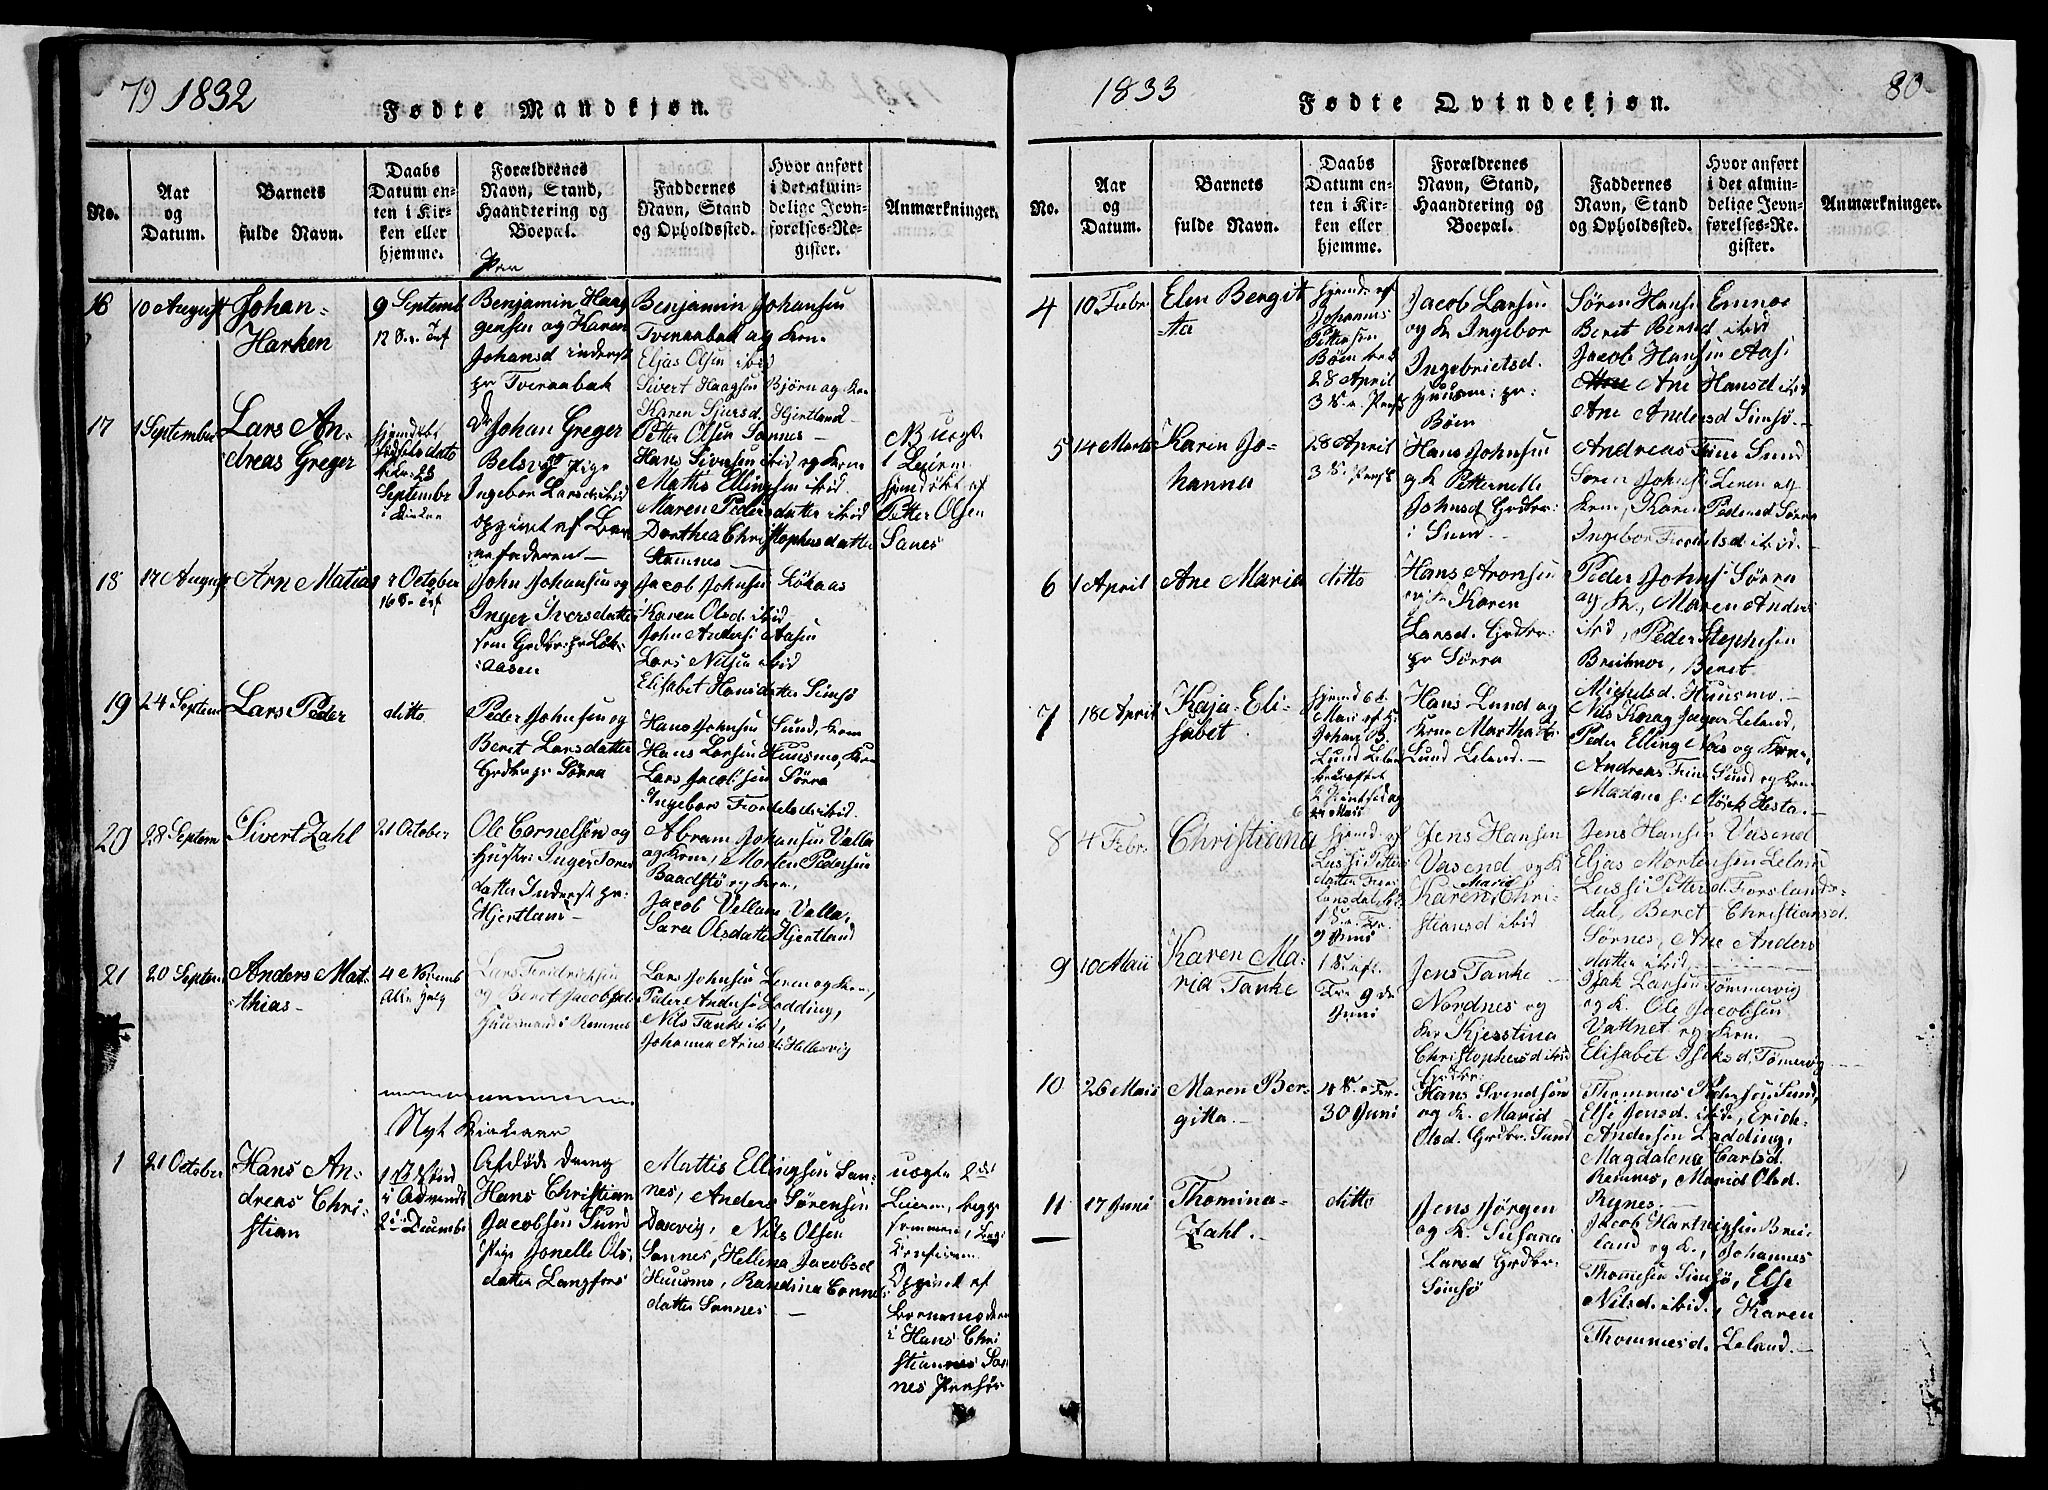 79 1832
Fødte Mandkjøn.
No.
Aar
og
Datum.
Barnets
fulde Navn.
Daabs
Datum en-
ten i Kir-
ken eller
hjemme.
Forældrenes
Navn, Stand,
Haandtering og
Boepæl.
Faddernes
Navn, Stand
og Opholdssted.
Hvor anført
i det almin-
delige Jevn-
førelses-Re-
gister.
Anmærkninger.
16
10 August
Johan-
Harken
9 Septemb
12 S.
Benjamin Haag
gensen og Karen
Johansd inderst
Tveraabak
Benjamin Johansen
Tveraabak og Kone
Eljas Olsen ibid
Sivert Haagsen Bjørn og Kone
Karen Sjursd. Hjertland
17
1 September
Lars An-
dreas Greger
September
i Kirken
Johan Greger
Pige
Ingebor Larsd ibid
opgivet af Bar-
nefaderen
Petter Olsen Sannes
Hans Siversen ibid og Kone
Mathis Ellingsen ibid
Maren Pedersdatter ibid
Dorthea Christophersdatter
Petter Olsen
Sanes
18
17 August
Arn Matias
October
16 S.
John Johansen og
Inger Iversdatter
Jacob Johnsen Løkaas
Karen Olsd ibid
John Anders Aasen
Lars Nilsen ibid
Elisabet Hansdatter Simsø
19
24 Septem
Lars Peder
ditto
Peder Johnsen og
Beret Larsdatter
Sørra
Hans Johnsen Sund, Kone
Hans Larsen Huusmo, Kone
Lars Jacobsen Sørra
Ingebor Fordelsd ibid.
20
28 Septem
Sivert Zahl
21 October
Ole Cornelsen og
Hustr: Inger Tores
datter Inderst pr:
Hjertland
Abram Johansen Valla
og Kone, Morten Pedersen
Baadstø og Kone,
Jacob Vellam Valla,
Sara Olsdatter Hjertland
21
20 Septem
Anders Mat-
thias
4 Novemb
Alle Helg
Lars Fredriksen
og Beret Jacobsd
Huusmand i Remnes
Lars Johnsen Leren og Kone,
Peder Anders Ladding,
Nils Tanke ibid,
Johanna Arnsd: Hellesvig
Nyt Kirkeaar
1
21 October
Hans An-
dreas Chri-
stian
i Advendt
2 Decemb
Afdøde Dreng
Hans Christian
Jacobsen Sund
Pige Jonelle Ols-
datter Langfors
Mattis Ellingsen San-
nes, Anders Sørensen
Daxvig, Nils Olsen
Sannes, Hellena Jacobsd
Huusmo, Randina Cornels
datter Sannes
uægte 2det
Opgivet af
Barnemoderen
i Hans Chri
stiannes San
nes
1833
Fødte Qvindekjøn.
80
No.
Aar
og
Datum.
Barnets
fulde Navn.
Daabs
Datum en-
ten i Kir-
ken eller
hjemme.
Forældrenes
Navn, Stand,
Haandtering og
Boepæl.
Faddernes
Navn, Stand
og Opholdssted.
Hvor anført
i det almin-
delige Jevn-
førelses-Re-
gister.
Anmærkninger.
4
10 Febr
Elen Bergit
ta
Hjemd. af
Johannes
Pettersen
Bøen
28 April
3 S. e. Paask
Jacob Larsen
og K. Ingebor
Ingebrietsd.
Huusm: pr:
Bøen
Søren Hansen Emnoe
Beret Berntsd ibid
Jacob Hansen Aase
Ane Hansd ibid
Ane Andersd Simsø.
5
14 Marts
Karen Jo-
hanna
28 April
3 S. e. Paask
Hans Johnsen
og K. Petternelle
Johnsd Grdbr:
i Sund
Andreas Finn Sund
Søren Johns: Leren og
Kone, Karen Pedersd Sørra
Ingebor Fordelsd. ibid.
6
1 April
Ane Maria
ditto
Hans Aronsen
og K Karen
Larsd. Grdbr:
pr Sørra
Peder Johns: Sørra
og K., Maren Anders
ibid, Peder Stephesen
Breimoe, Beret
Michelsd. Huusmo.
7
18 April
Kaja Eli-
sabet
Hjemd 6 t
Maii af K.
Johan B.
Lund Leland
Hans Lund og
Kone Martha
Lund Leland.
Nils Knag Jæger Leland,
Peder Elling Næs og Kone,
Andreas Finn Sund og Kone
Hesta.
8
4 Febr.
Christiana
Hjemd. af
Lussi Petters
datter Fors
landsdal,
9 Juni
Jens Hansen
Vasend og K
Maria
Karen Chri-
stiansd ibid
Jens Hansen Vasend
Eljas Mortensen Leland
Lussi Pettersd. Forslands-
dal, Beret Christiansd.
Sørnes, Ane Anders
datter ibid
9
10 Maii
Karen Ma-
ria Tanke
9 de
Juni
Jens Tanke
Nordnes og
Kone Kjesstina
Christophersd ibid
Grdbr:
Isak Larsen Tømmervig
og K. Ole Jacobsen
Vattnet og Kone
Elisabet Isaksd. Tømervig
10
26 Maii
Maren Ber-
gitta.
4 S. e. Tr.
30 Juni
Hans Svendsen
og K. Marid
Olsd. Grdbr. Sund
Thommes Pedersen Sund,
Else Jensd. ibid, Erich
Andersen Ladding,
Magdalena Carlsd.
Remnes, Marid Olsd.
Rynes.
11
17 Juni
Thomina
Zahl.
ditto
Jens Jørgen
og K. Susana
Larsd Grdbr.
Simsø
Jacob Hartvigsen Brei
land og K., Johannes
Thomesen Simsø, Else
Nilsd. ibid., Karen
Thommesd. Leland.